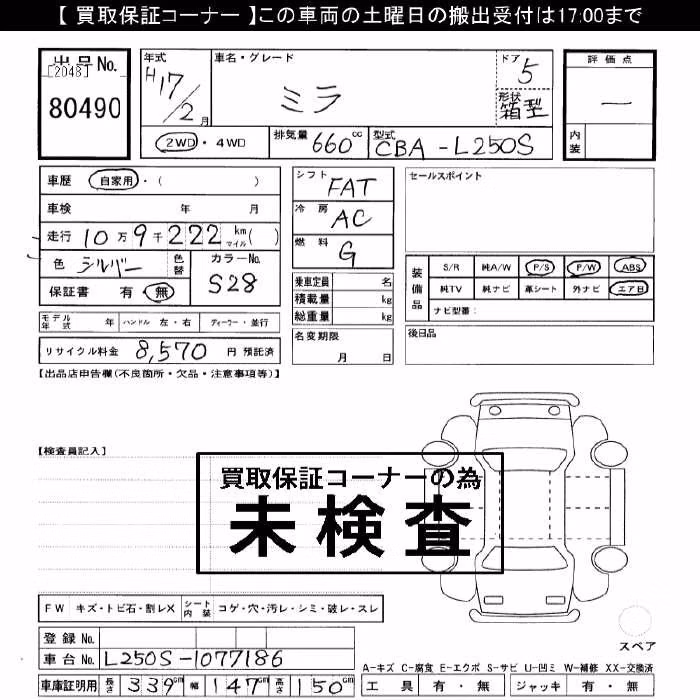 【 買取保証コーナー 】この車両の土曜日の搬出受付は17:00まで
出品No.
[2048]
80490
年式
H17/2月
車名・グレード
ミラ
ドア
5
形状
箱型
評価点
一
内装
2WD・4WD
排気量 660 cc
型式 CBA-L250S
車歴 自家用・( )
車検 年 月
走行 10万9千222 km マイル( )
色 シルバー 色替 カラーNo. S28
保証書 有・無
シフト FAT
冷房 AC
燃料 G
乗車定員 名
積載量 kg
総重量 kg
セールスポイント
装備品
S/R 純A/W P/S P/W ABS
純TV 純ナビ 革シート 外ナビ エアB
ナビ型番:
モデル年式 年 ハンドル 左・右 ディーラー・並行
リサイクル料金 8,570 円 預託済
名変期限
月 日
後日品
【出品店申告欄(不良箇所・欠品・注意事項等)】
【検査員記入】
買取保証コーナーの為
未検査
FW キズ・トビ石・割レX シート内装 コゲ・穴・汚レ・シミ・破レ・スレ
スペア
登録No.
車台No. L250S-1077186
車庫証明用 長さ 339cm 幅 147cm 高さ 150cm
A-キズ C-腐食 E-エクボ S-サビ U-凹ミ W-補修 XX-交換済
工具 有・無 ジャッキ 有・無